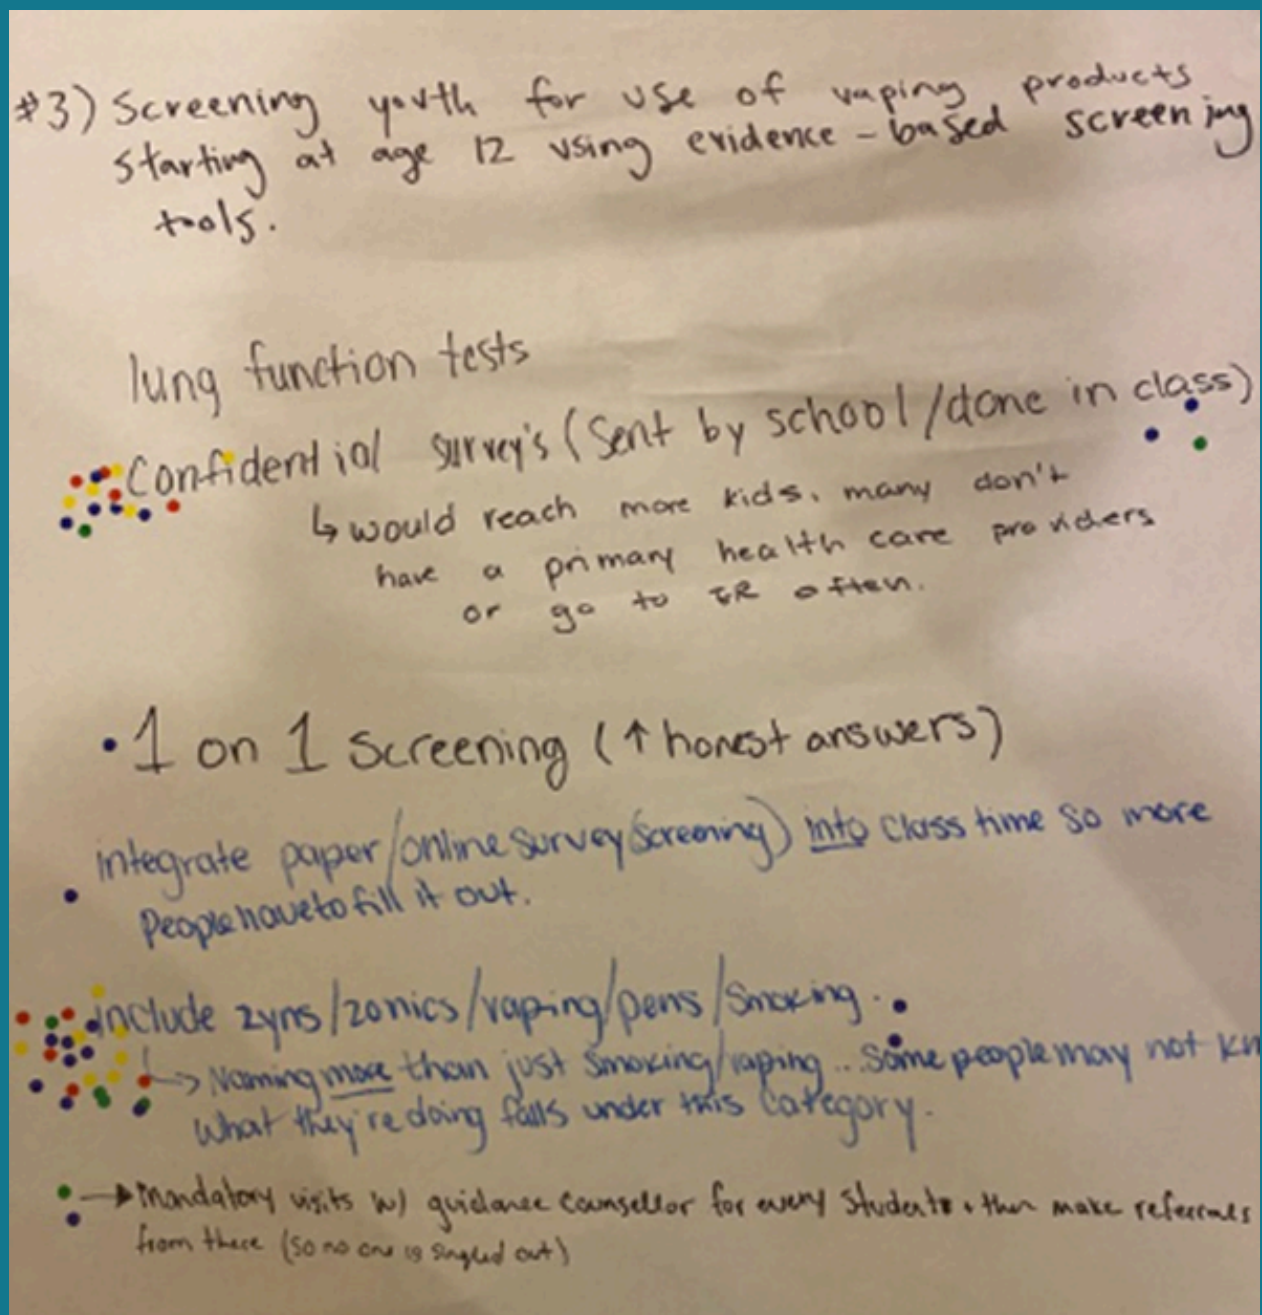 #3) Screening youth for use of vaping products
starting at age 12 using evidence-based screening
tools.
lung function tests
Confidential survey's (Sent by school/done in class)
↳ would reach more kids. many don't
have a primary health care providers
or go to ER often.
• 1 on 1 screening (↑ honest answers)
integrate paper/online survey(screening) into class time so more
People have to fill it out.
include zyns/zonics/vaping/pens/smoking.
↳ Naming more than just smoking/vaping...some people may not kn
what they're doing falls under this category.
→ Mandatory visits w/ guidance counsellor for every student + then make referrals
from there (so no one is singled out)